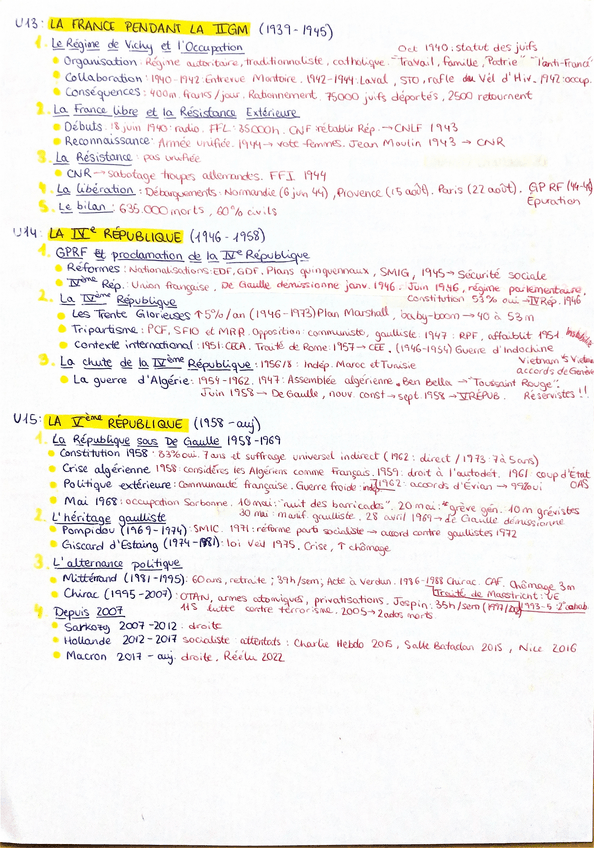 U13: LA FRANCE PENDANT LA IIGM (1939-1945)
1. Le Régime de Vichy et l'Occupation Oct 1940: statut des juifs
Organisation: Régime autoritaire, traditionnaliste, catholique. "Travail, famille, Patrie" "l'anti-France"
Collaboration: 1940-1942: Entrevue Montoire. 1942-1944: Laval, STO, rafle du Vél d'Hiv. 1942: occup.
Conséquences: 400m. frans/jour. Rationnement. 75000 juifs déportés, 2500 retournent
2. La France libre et la Résistance Extérieure
Débuts: 18 juin 1940: radio. FFL: 35000h. CNF rétablir Rép. → CNLF 1943
Reconnaissance: Armée unifiée. 1944 → vote femmes. Jean Moulin 1943 → CNR
3. La Résistance: pas unifiée
CNR → sabotage troupes allemandes. FFI 1944
4. La libération: Débarquements: Normandie (6 juin 44), Provence (15 août). Paris (22 août). GPRF (44-46)
Épuration
5. Le bilan: 635.000 morts, 60% civils
U14: LA IVe RÉPUBLIQUE (1946-1958)
1. GPRF et proclamation de la IVe République
Réformes: Nationalisations: EDF, GDF. Plans quinquennaux, SMIG, 1945 → Sécurité sociale
IVème Rép: Union française. De Gaulle démissionne janv. 1946. Juin 1946, régime parlementaire.
Constitution 53% oui → IV Rép. 1946
2. La IVème République
Les Trente Glorieuses ↑ 5%/an (1946-1973) Plan Marshall, baby-boom → 40 à 53m
Tripartisme: PCF, SFIO et MRP. Opposition: communiste, gaulliste. 1947: RPF, affaiblit 1951
Contexte international: 1951: CECA. Traité de Rome: 1957 → CEE. (1946-1954) Guerre d'Indochine
accords de Genève
3. La chute de la IVème République: 1956/8: Indép. Maroc et Tunisie
La guerre d'Algérie: 1954-1962. 1947: Assemblée algérienne. Ben Bella → "Toussaint Rouge".
Juin 1958 → De Gaulle, nouv. const → sept. 1958 → V RÉPUB. Réservistes !!
U15: LA Vème RÉPUBLIQUE (1958-auj)
1. La République sous De Gaulle 1958-1969
Constitution 1958: 83% oui. 7 ans et suffrage universel indirect (1962: direct / 1973: 7 à 5 ans)
Crise algérienne 1958: considérés les Algériens comme Français. 1959: droit à l'autodét. 1961 coup d'État
OAS
Politique extérieure: Communauté française. Guerre froide: 1962: accords d'Évian → 99% oui
Mai 1968: occupation Sorbonne. 10 mai: "nuit des barricades". 20 mai: "grève gén. 10m grévistes
30 mai: manif gaulliste. 28 avril 1969 → de Gaulle démissionne
2. L'héritage gaulliste
Pompidou (1969-1974): SMIC. 1971: réforme parti socialiste → accord contre gaullistes 1972
Giscard d'Estaing (1974-1981): loi Veil 1975. Crise, ↑ chômage
3. L'alternance politique
Mittérand (1981-1995): 60 ans, retraite; 39h/sem; Acte à Verdun. 1986-1988 Chirac. CAF. Chômage 3m
Traité de Masstricht: UE
Chirac (1995-2007): OTAN, armes atomiques, privatisations. Jospin: 35h/sem 1993-5: 2e cohab.
11S lutte contre terrorisme. 2005 → 2 ados morts.
4. Depuis 2007
Sarkozy 2007-2012: droite
Hollande 2012-2017 socialiste: attentats: Charlie Hebdo 2015, Salle Bataclan 2015, Nice 2016
Macron 2017-auj. droite, Réélu 2022